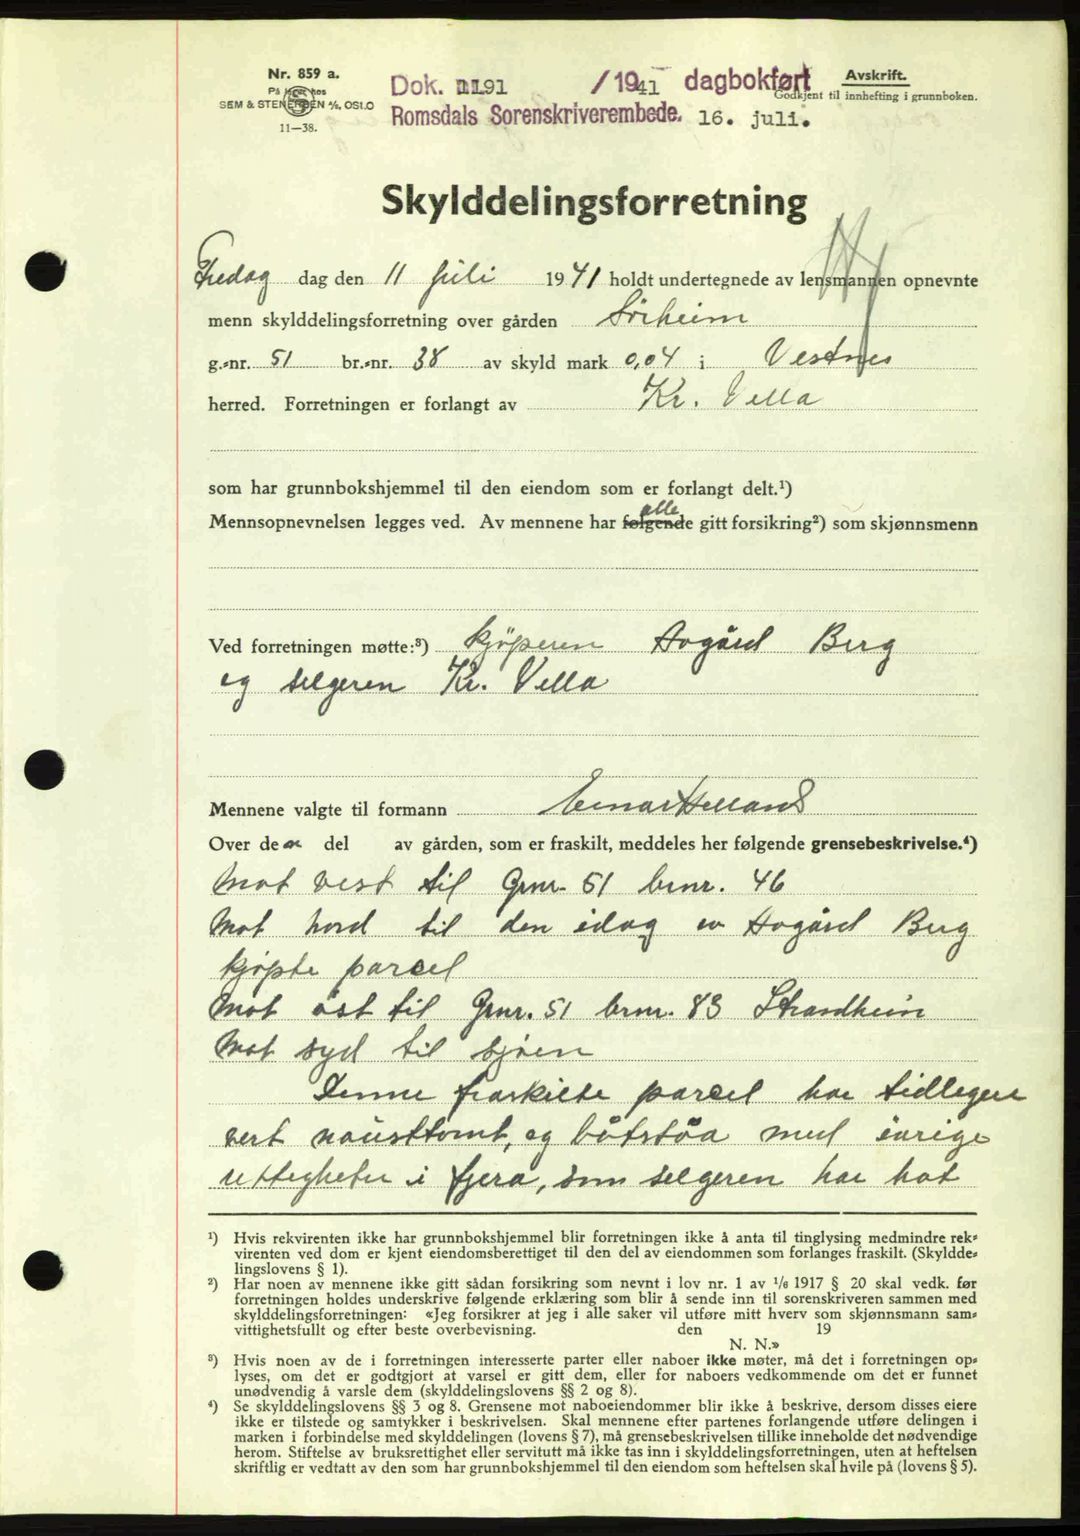 Nr. 859 a.
På lager hos
SEM & STENERSEN A/S, OSLO
11—38.
Dok. 1191 /1941 dagbokført
Romsdals Sorenskriverembede. 16. juli.
Avskrift.
Godkjent til innhefting i grunnboken.
Skylddelingsforretning
Fredag dag den 11 juli 1941 holdt undertegnede av lensmannen opnevnte
menn skylddelingsforretning over gården Sörheim
g.-nr. 51 br.-nr. 38 av skyld mark 0,04 i Vestnes
herred. Forretningen er forlangt av Kr. Vella
som har grunnbokshjemmel til den eiendom som er forlangt delt.¹)
alle
Mennsopnevnelsen legges ved. Av mennene har følgende gitt forsikring²) som skjønnsmenn
Ved forretningen møtte:³) kjöperen Hogård Berg
og selgeren Kr. Vella
Mennene valgte til formann Einar Helland
Over den del av gården, som er fraskilt, meddeles her følgende grensebeskrivelse.⁴)
Mot vest til Grnr. 51 brnr. 46
Mot nord til den idag av Hogård Berg
kjøpte parcel
Mot öst til Grnr. 51 brnr. 83 Strandheim
Mot syd til sjöen
Denne fraskilte parcel har tidlegere
vert nausttomt, og båtstöa med övrige
rettigheter i fjera, som selgeren har hat
¹) Hvis rekvirenten ikke har grunnbokshjemmel blir forretningen ikke å anta til tinglysing medmindre rek-
virenten ved dom er kjent eiendomsberettiget til den del av eiendommen som forlanges fraskilt. (Skyldde-
lingslovens § 1).
²) Har noen av mennene ikke gitt sådan forsikring som nevnt i lov nr. 1 av 1/6 1917 § 20 skal vedk. før
forretningen holdes underskrive følgende erklæring som blir å sende inn til sorenskriveren sammen med
skylddelingsforretningen: «Jeg forsikrer at jeg i alle saker vil utføre mitt hverv som skjønnsmann sam-
vittighetsfullt og efter beste overbevisning. den 19
N. N.»
³) Hvis noen av de i forretningen interesserte parter eller naboer ikke møter, må det i forretningen op-
lyses, om det er godtgjort at varsel er gitt dem, eller for naboers vedkommende om det er funnet
unødvendig å varsle dem (skylddelingslovens §§ 2 og 8).
⁴) Se skylddelingslovens §§ 3 og 8. Grensene mot naboeiendommer blir ikke å beskrive, dersom disses eiere
ikke er tilstede og samtykker i beskrivelsen. Skal mennene efter partenes forlangende utføre delingen i
marken i forbindelse med skylddelingen (lovens § 7), må grensebeskrivelsen tillike inneholde det nødvendige
herom. Stiftelse av bruksrettighet eller servitutt må ikke tas inn i skylddelingsforretningen, uten at heftelsen
skriftlig er vedtatt av den som har grunnbokshjemmel til den eiendom som heftelsen skal hvile på (lovens § 5).